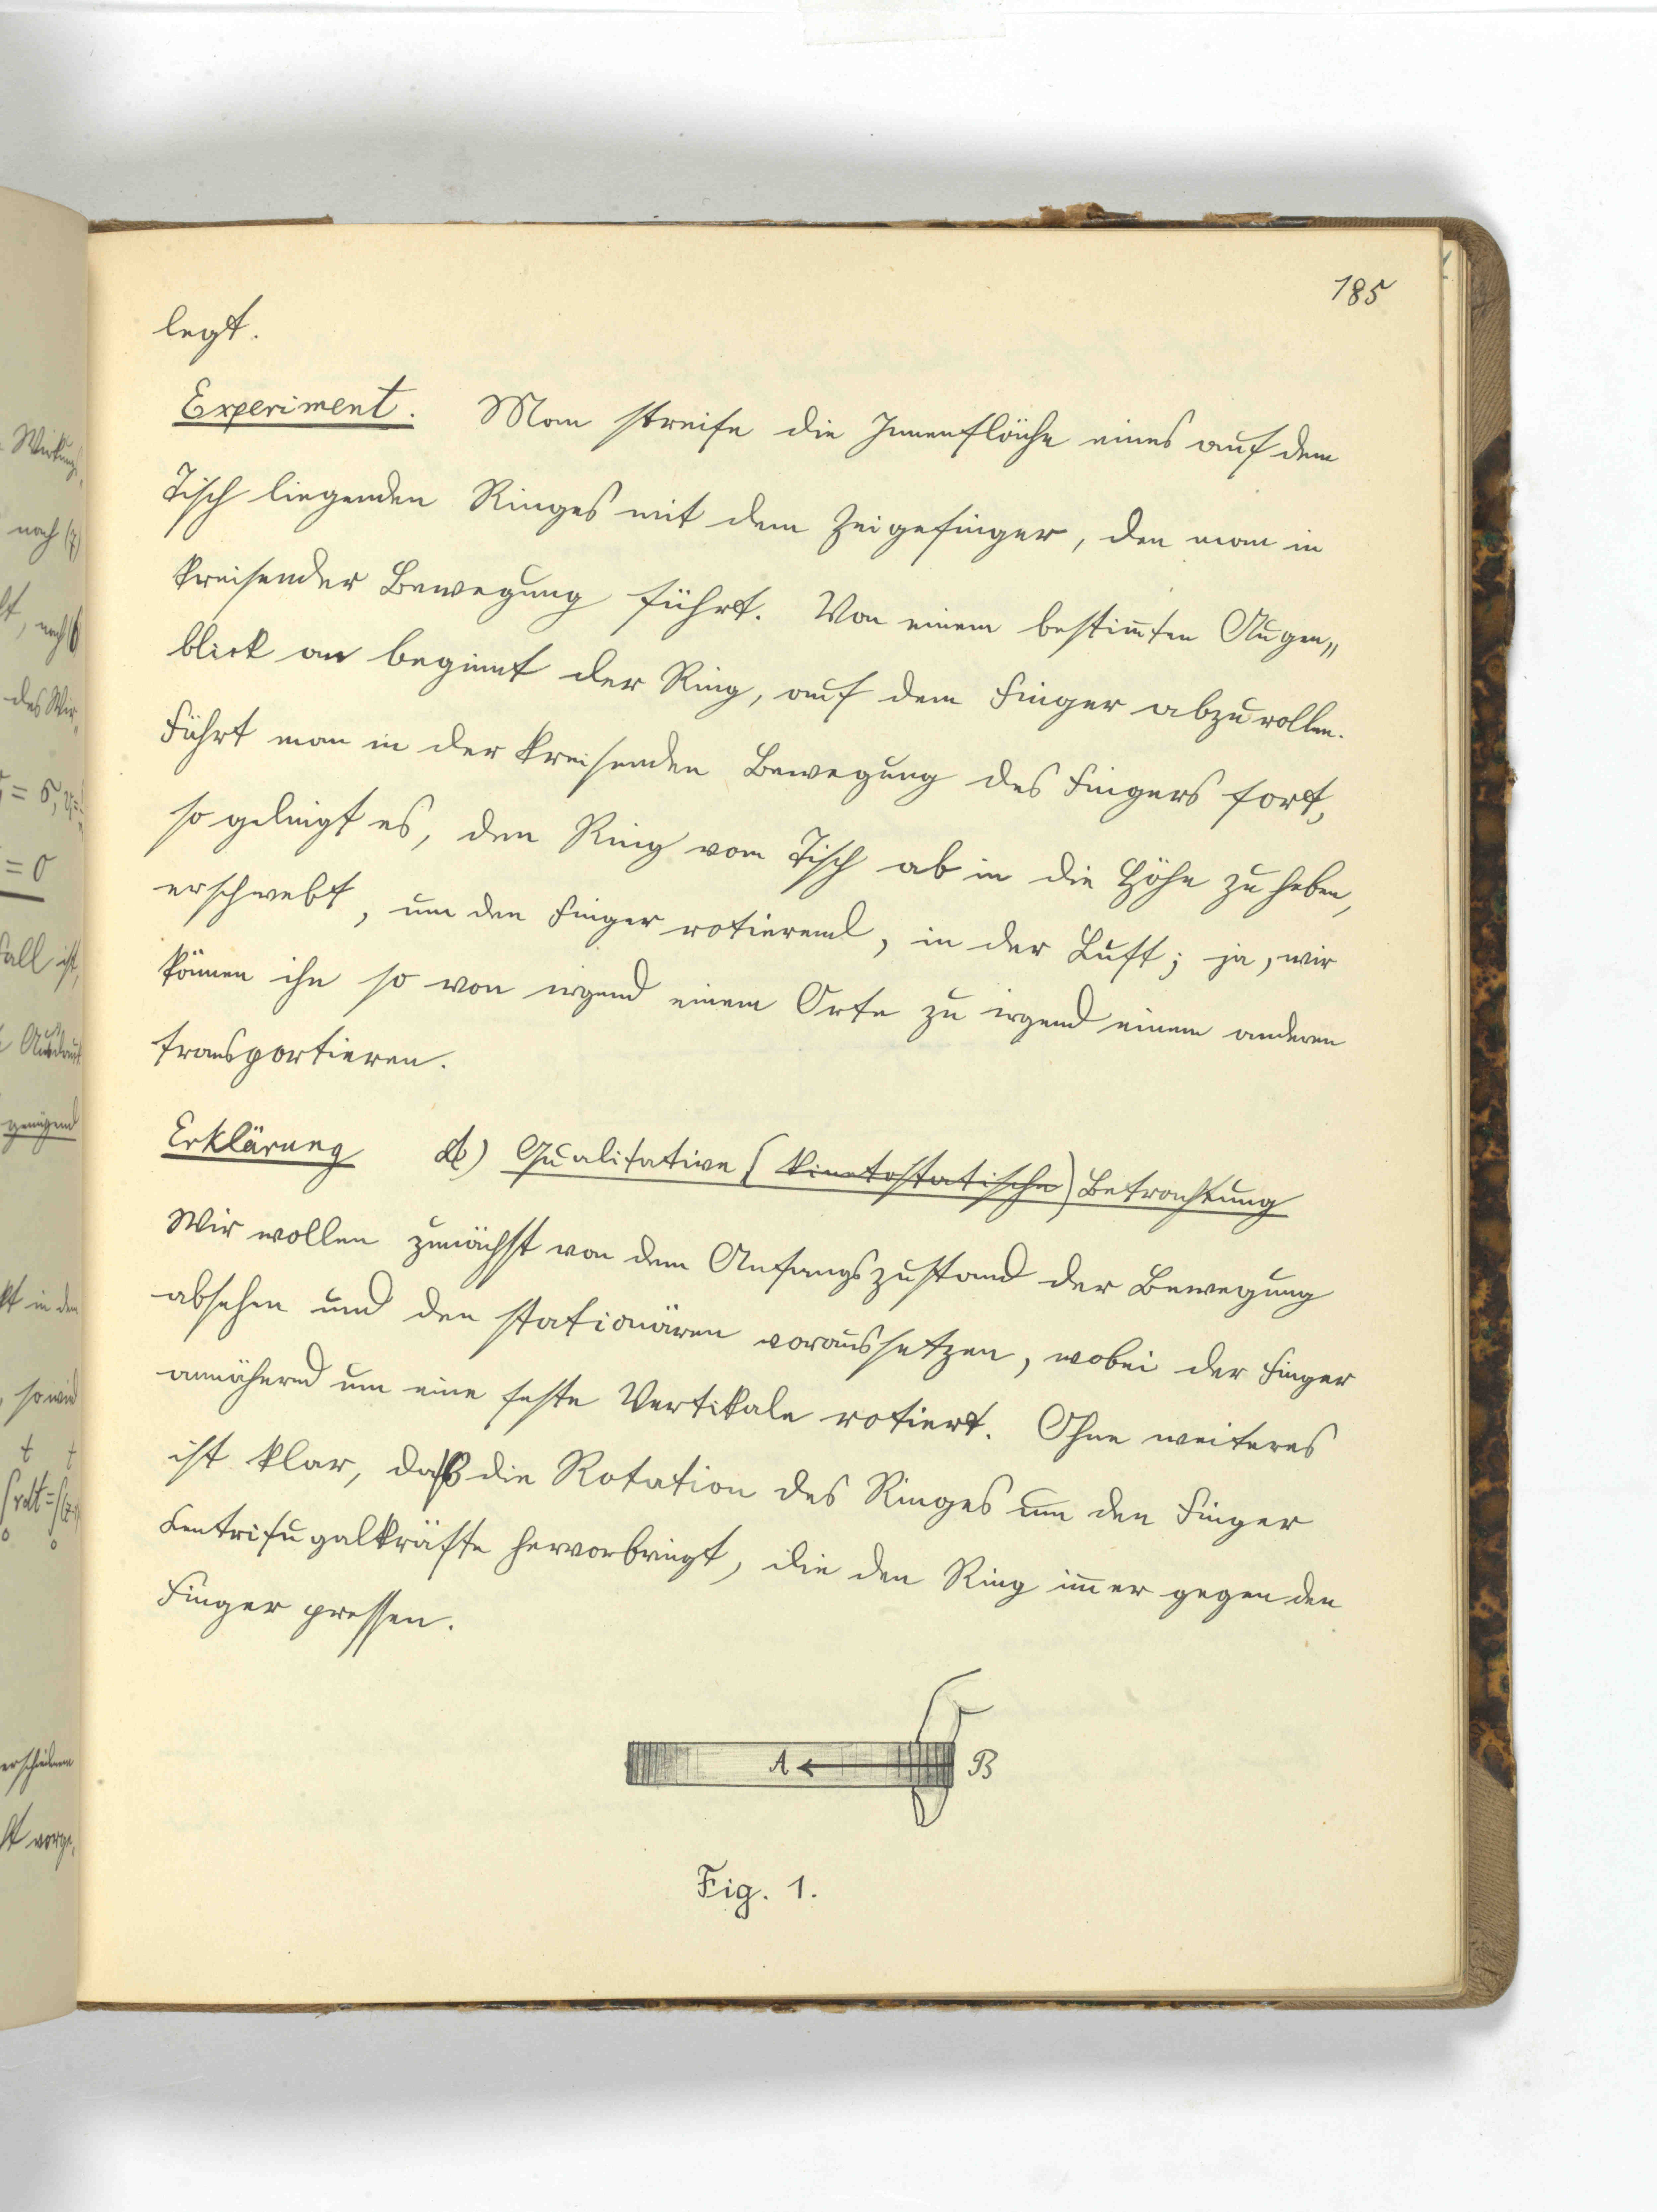 185
legt.
Experiment. Man streife die Innenfläche eines auf dem
Tisch liegenden Ringes mit dem Zeigefinger, den man in
kreisender Bewegung führt. Von einem bestim̅ten Augen„
blick an beginnt der Ring, auf dem Finger abzurollen.
Führt man in der kreisenden Bewegung des Fingers fort,
so gelingt es, den Ring vom Tisch ab in die Höhe zu heben,
er schwebt, um den Finger rotierend, in der Luft; ja, wir
kön̅en ihn so von irgend einem Orte zu irgend einem anderen
transportieren.
Erklärung Qualitative (kinetostatische) Betrachtung
Wir wollen zunächst von dem Anfangszustand der Bewegung
absehen und den stationären voraussetzen, wobei der Finger
annähernd um eine feste Vertikale rotiert. Ohne weiteres
ist klar, daß die Rotation des Ringes um den Finger
Centrifugalkräfte hervorbringt, die den Ring im̅er gegen den
Finger pressen.
A B
Fig. 1.
Wirkung
nach (7)
des Wir
= 0
Fall ist,
genügend
kt in den
, so wird
t t
0 0